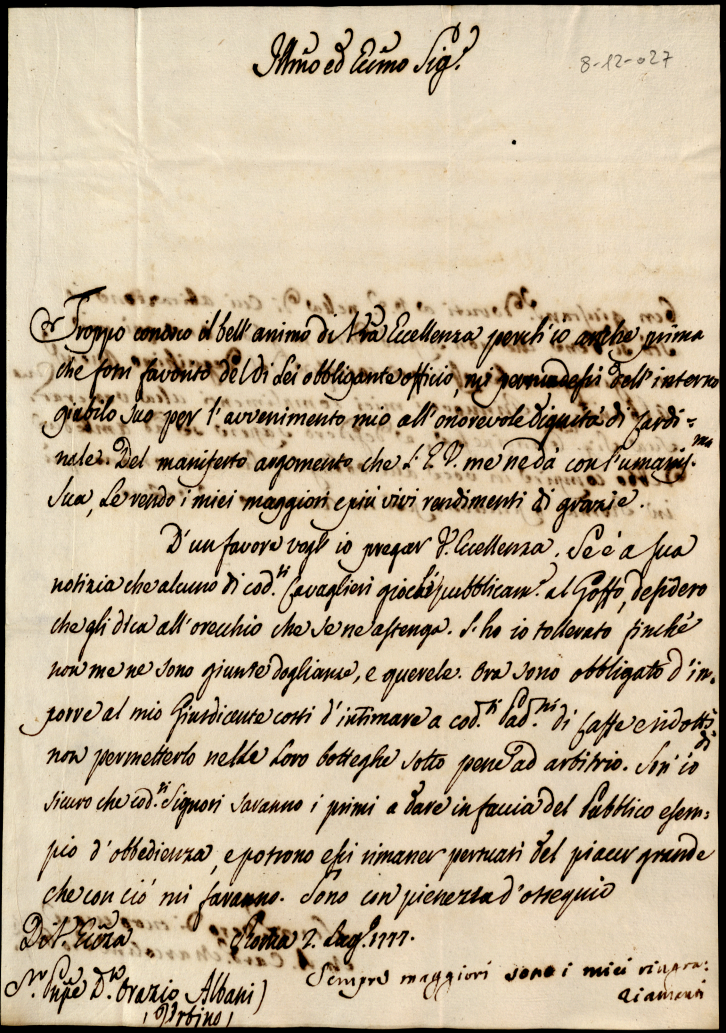 Illmo ed Eccmo Sigr.
8-12-027
Troppo conosco il bell'animo di Vra Eccellenza perch'io anche prima
che fossi favorito del di Lei obbligante officio, mi persuadessi dell'interno
giubilo suo per l'avvenimento mio all'onorevole dignità di Cardi=
nale. Del manifesto argomento che l'E.V. me ne dà con l'umaniss.ma
sua, Le rendo i miei maggiori e più vivi rendimenti di grazie.
D'un favore vogl'io pregar V. Eccellenza. Se è a sua
notizia che alcuno di cod.ti Cavaglieri giochi pubblicam.e al Goffo, desidero
che gli dica all'orecchio che se ne astenga. L'ho io tollerato finchè
non me ne sono giunte doglianze, e querele. Ora sono obbligato d'im=
porre al mio Giusdicente costì d'intimare a cod.ti Pad.ni di Caffe e ridotti di
non permetterlo nelle loro botteghe sotto pene ad arbitrio. Son io
sicuro che cod.ti Signori saranno i primi a dare in faccia del Pubblico esem=
pio d'obbedienza, e potrono essi rimaner persuasi del piacer grande
che con ciò mi faranno. Sono con pienezza d'ossequio
Di V. Eccza Roma 2. Lug.o 1777.
Sempre maggiori sono i miei ringra=
ziamenti
Sr. Pnpe Dn. Orazio Albani
Urbino